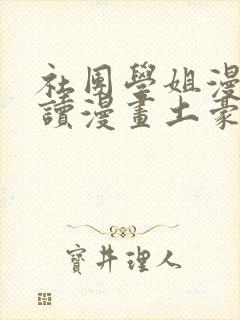 社團學姐漫
讀漫畫土豪
寶井理人